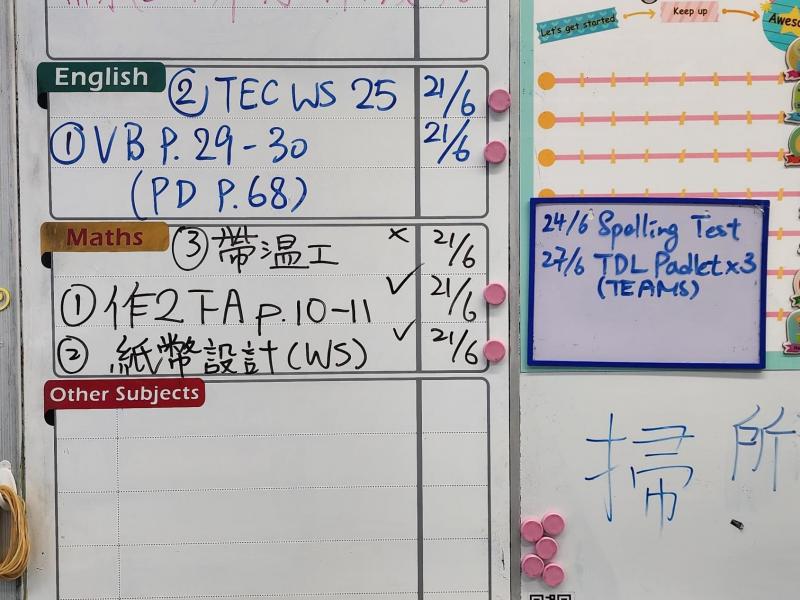 English
② TEC WS 25 21/6
① VB P.29-30 21/6
(PD P.68)
Maths
③ 帶温工 × 21/6
① 作2下A p.10-11 ✓ 21/6
② 紙幣設計(WS) ✓ 21/6
Other Subjects
Let's get started
Keep up
24/6 Spelling Test
27/6 TDL Padlet x3
(TEAMS)
掃 所